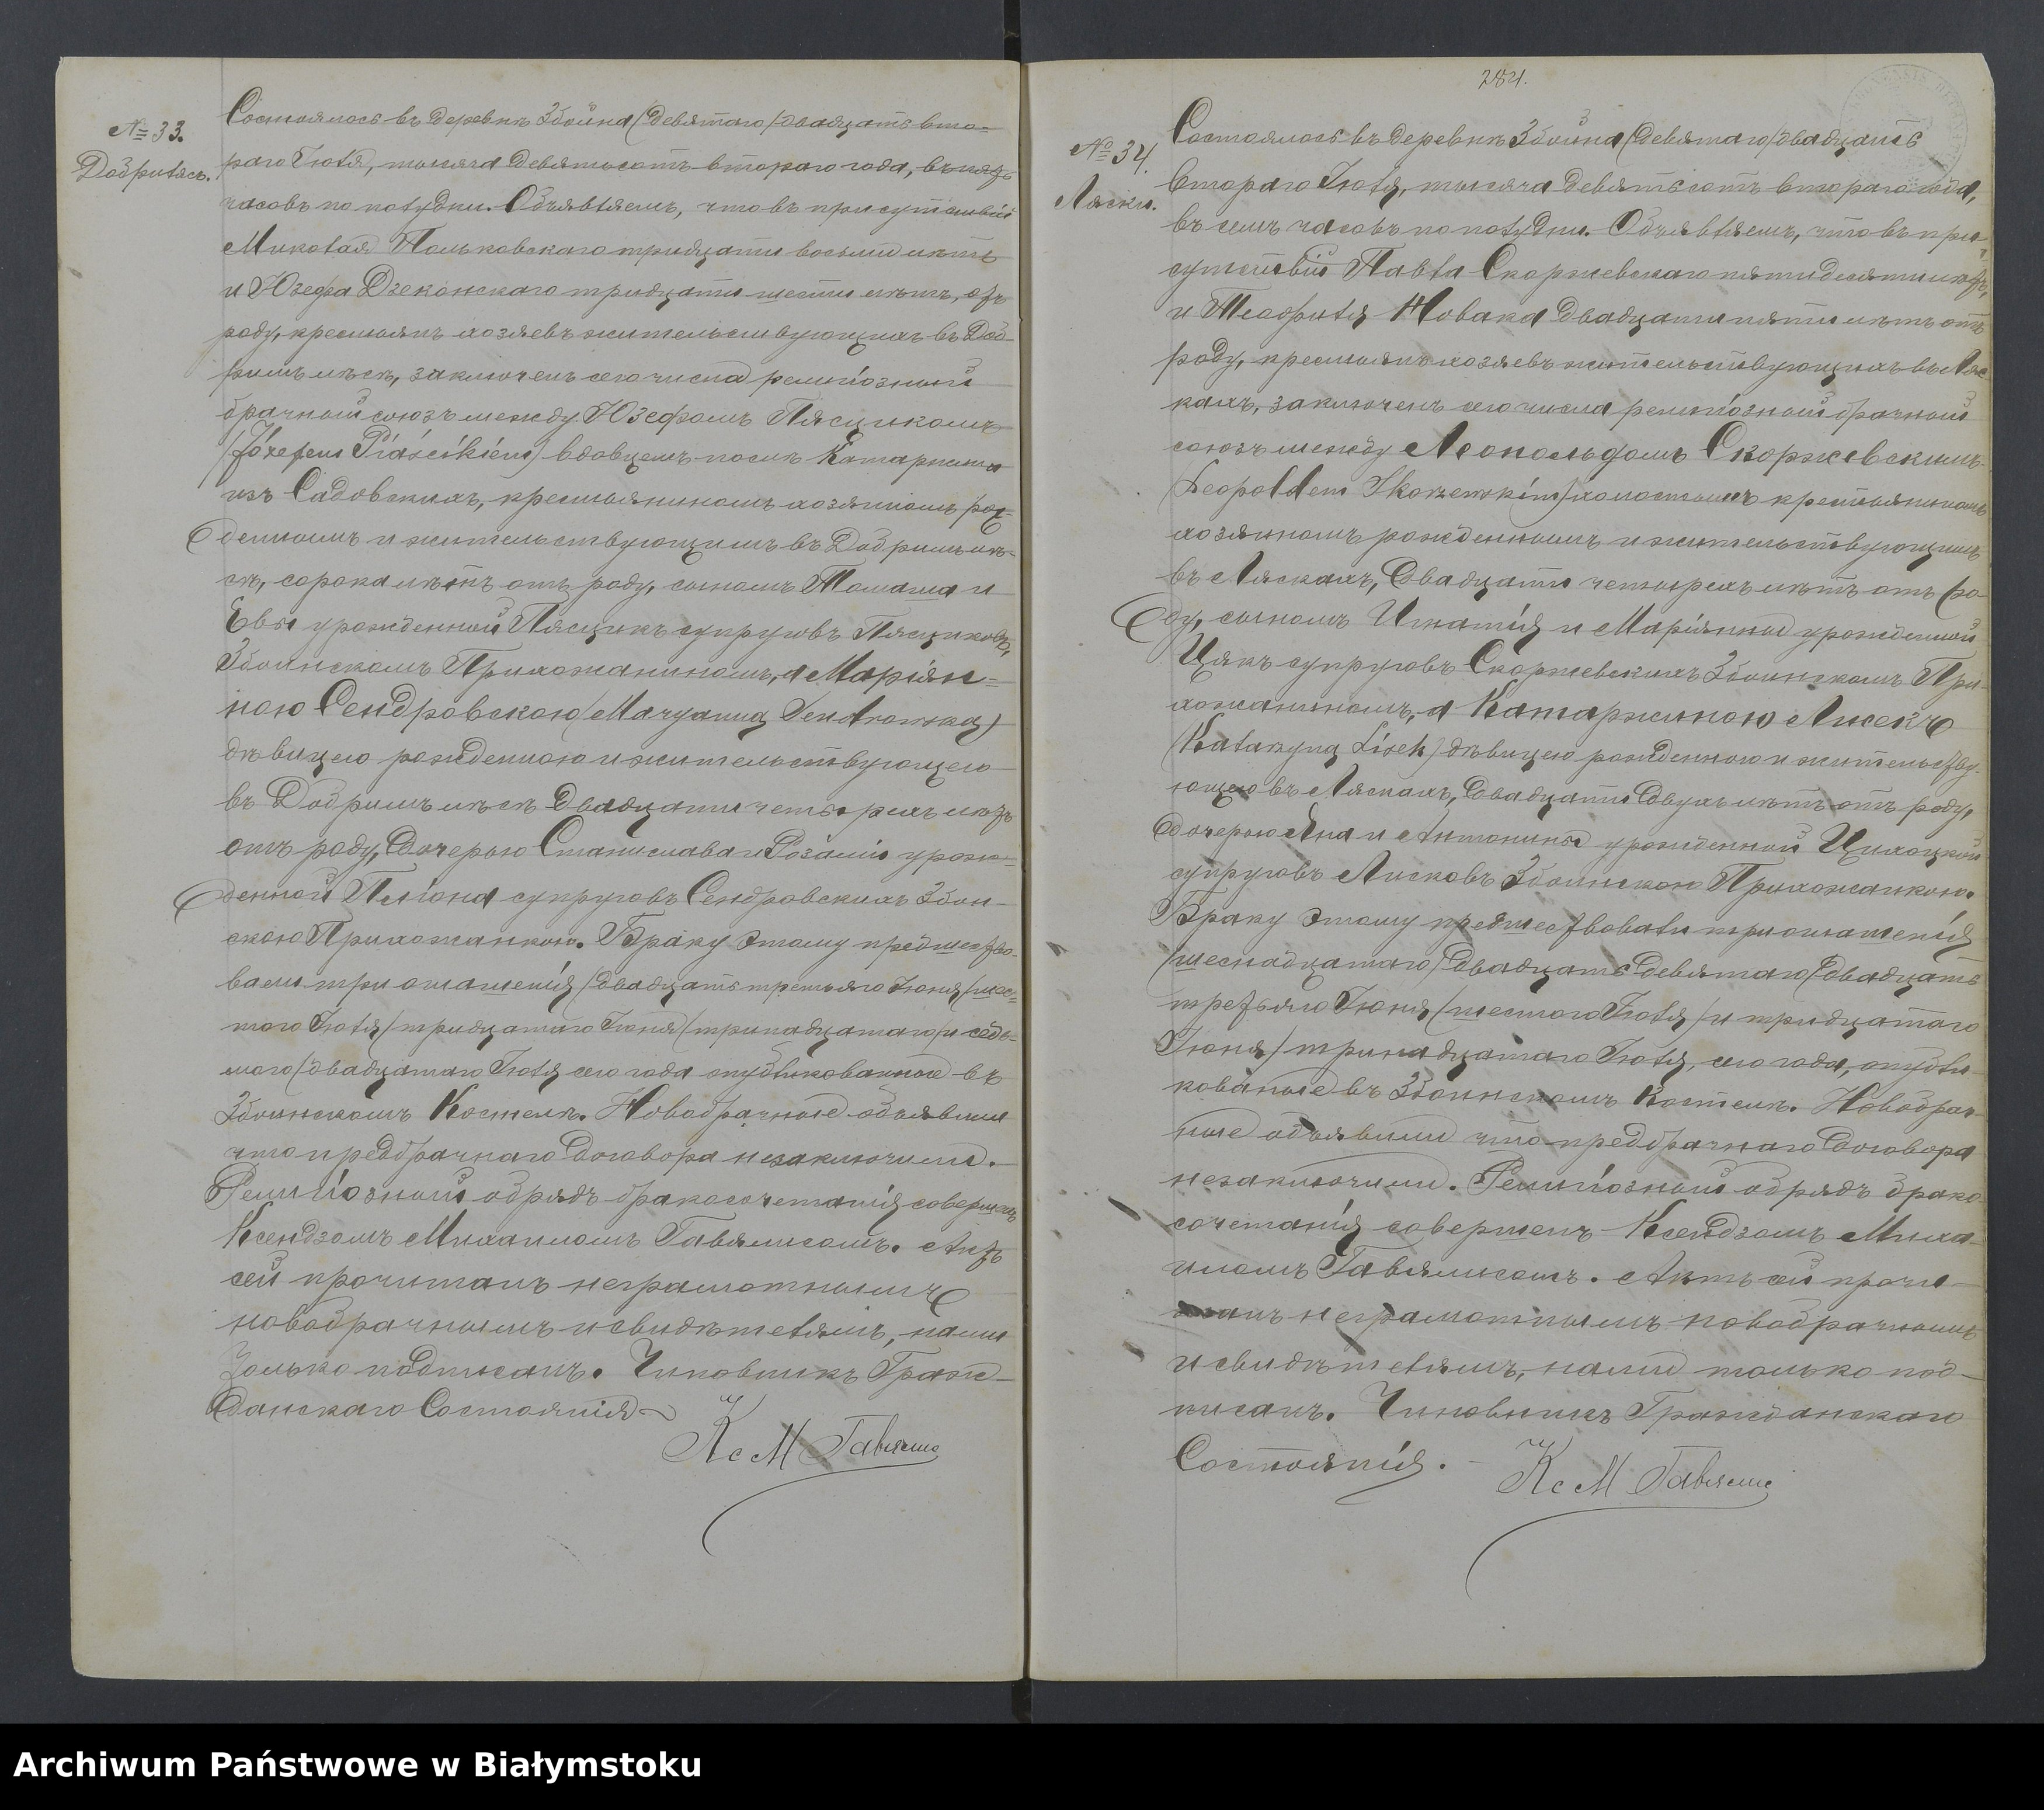 № 33.
Добрылясъ.
Состоялось въ деревнѣ Збойна (девятаго) двадцать вто-
раго Іюля, тысяча девятьсотъ втораго года, въ пять
часовъ по полудни. Объявляемъ, что въ присутствіи
Миколая Польковскаго тридцати восьми лѣтъ
и Юзефа Дзеконскаго тридцати шести лѣтъ, отъ
роду, крестьянъ хозяевъ жительствующихъ въ Доб-
рымъ лѣсѣ, заключенъ сего числа религіозный
брачный союзъ между Юзефомъ Пясцикомъ
(Józefem Piáścikiem) вдовцемъ послѣ Катаржины
изъ Садовскихъ, крестьяниномъ хозяиномъ рож-
деннымъ и жительствующимъ въ Добрымъ лѣ-
сѣ, сорока лѣтъ отъ роду, сыномъ Томаша и
Евы урожденной Пясцикъ супруговъ Пясциковъ,
Збоинскомъ Прихожаниномъ, а Маріян-
ною Сендровскою (Maryanną Sendrowską)
дѣвицею рожденною и жительствующею
въ Добрымъ лѣсѣ двадцати четырехъ лѣтъ
отъ роду, дочерью Станислава и Розаліи урож-
денной Пліона супруговъ Сендровскихъ Збоин-
скою Прихожанкою. Браку этому предшество-
вали три оглашенія (двадцать третьяго Іюня) шес-
таго Іюля (тридцатаго Іюня) тринадцатаго и седь-
маго (двадцатаго Іюля сего года опубликованные въ
Збоинскомъ Костелѣ. Новобрачные объявили
что предбрачнаго договора незаключили.
Религіозный обрядъ бракосочетанія совершенъ
Ксендзомъ Михаиломъ Гавялисомъ. Актъ
сей прочитанъ неграмотнымъ
новобрачнымъ и свидѣтелямъ, нами
только подписанъ. Чиновникъ Граж-
данскаго Состоянія
Кс М Гавялис
284.
№ 34.
Ляски.
Состоялось въ деревнѣ Збойна (девятаго) двадцать
втораго Іюля, тысяча девятьсотъ втораго года,
въ семь часовъ по полудни. Объявляемъ, что въ при-
сутствіи Павла Скоржевскаго пятидесяти лѣтъ,
и Теофиля Новака двадцати пяти лѣтъ отъ
роду, крестьянъ хозяевъ жительствующихъ въ Ляс-
кахъ, заключенъ сего числа религіозный брачный
союзъ между Леопольдомъ Скоржевскимъ
(Leopoldem Skorzewskim) холостымъ крестьяниномъ
хозяиномъ рожденнымъ и жительствующимъ
въ Ляскахъ, двадцати четырехъ лѣтъ отъ ро-
ду, сыномъ Игнатія и Маріянны урожденной
Цякъ супруговъ Скоржевскихъ Збоинскомъ При-
хожаниномъ, а Катаржиною Лисекъ
(Katarzyną Lisek) дѣвицею рожденною и жительству-
ющею въ Ляскахъ, двадцати двухъ лѣтъ отъ роду,
дочерью Яна и Антонины урожденной Цихоцкой
супруговъ Лисковъ Збоинскою Прихожанкою.
Браку этому предшествовали три оглашенія
(шеснадцатаго) двадцать девятаго (двадцать
третьяго Іюня) шестаго Іюля) и тридцатаго
Іюня) тринадцатаго Іюля, сего года, опубли-
кованные въ Збоинскомъ Костелѣ. Новобрач-
ные объявили что предбрачнаго договора
незаключили. Религіозный обрядъ брако-
сочетанія совершенъ Ксендзомъ Миха-
иломъ Гавялисомъ. Актъ сей прочи-
танъ неграмотнымъ новобрачнымъ
и свидѣтелямъ, нами только под-
писанъ. Чиновникъ Гражданскаго
Состоянія.
Кс М Гавялис
Archiwum Państwowe w Białymstoku